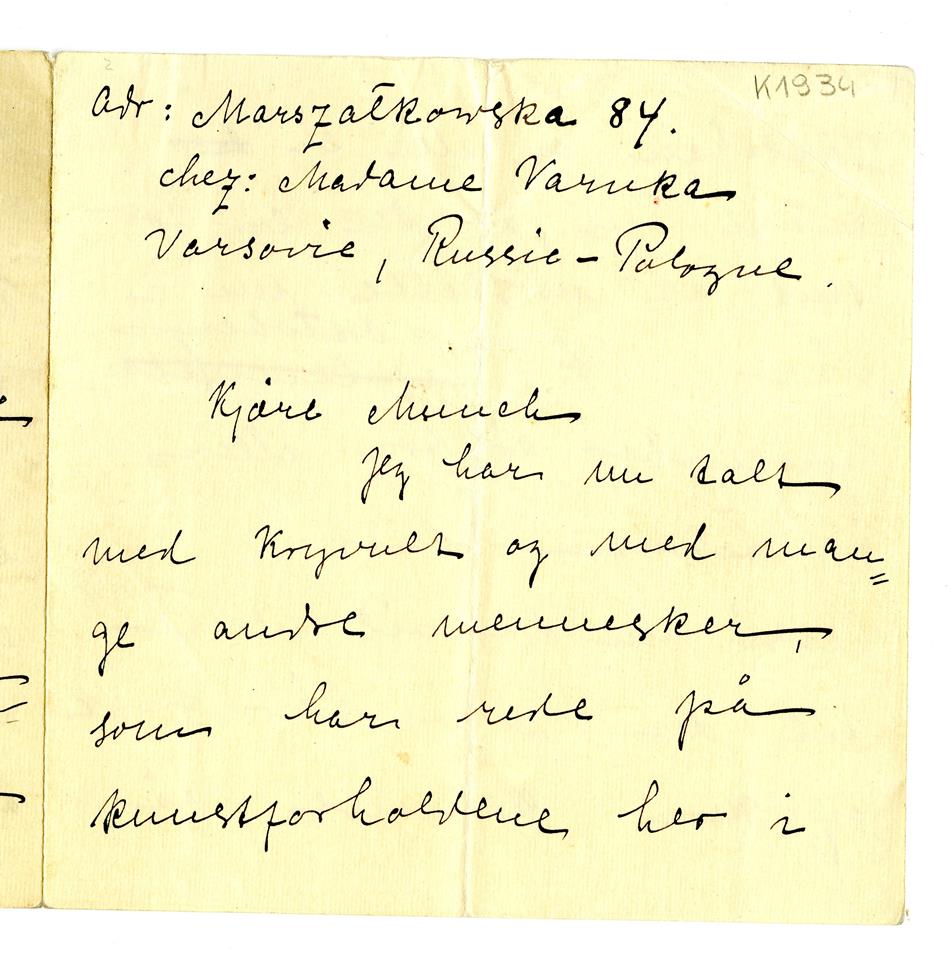 K1934
Adr: Marszałkowska 84.
chez: Madame Varnka
Varsovie, Russie-Pologne.
Kjære Munch
Jeg har nu talt
med Kryvult og med man=
ge andre mennesker,
som har rede på
kunstforholdene her i